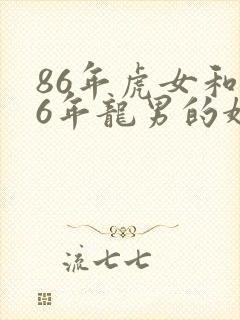 86年虎女和
6年龍男的
流七七